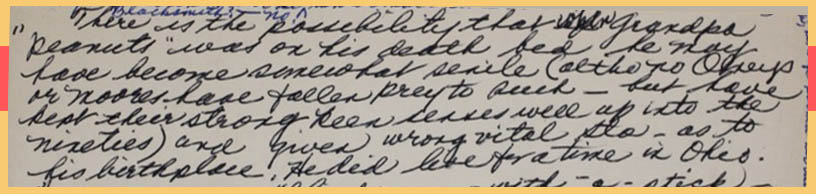 Blacksmith? - no.
There is the possibility that when Grandpa
"Peanuts" was on his death bed he may
have become somewhat senile (altho no
or Moores have fallen prey to such - but have
kept their strong keen senses well up into the
nineties) and given wrong vital sta - as to
his birthplace. He did live for a time in Ohio.
with - a - stick) -